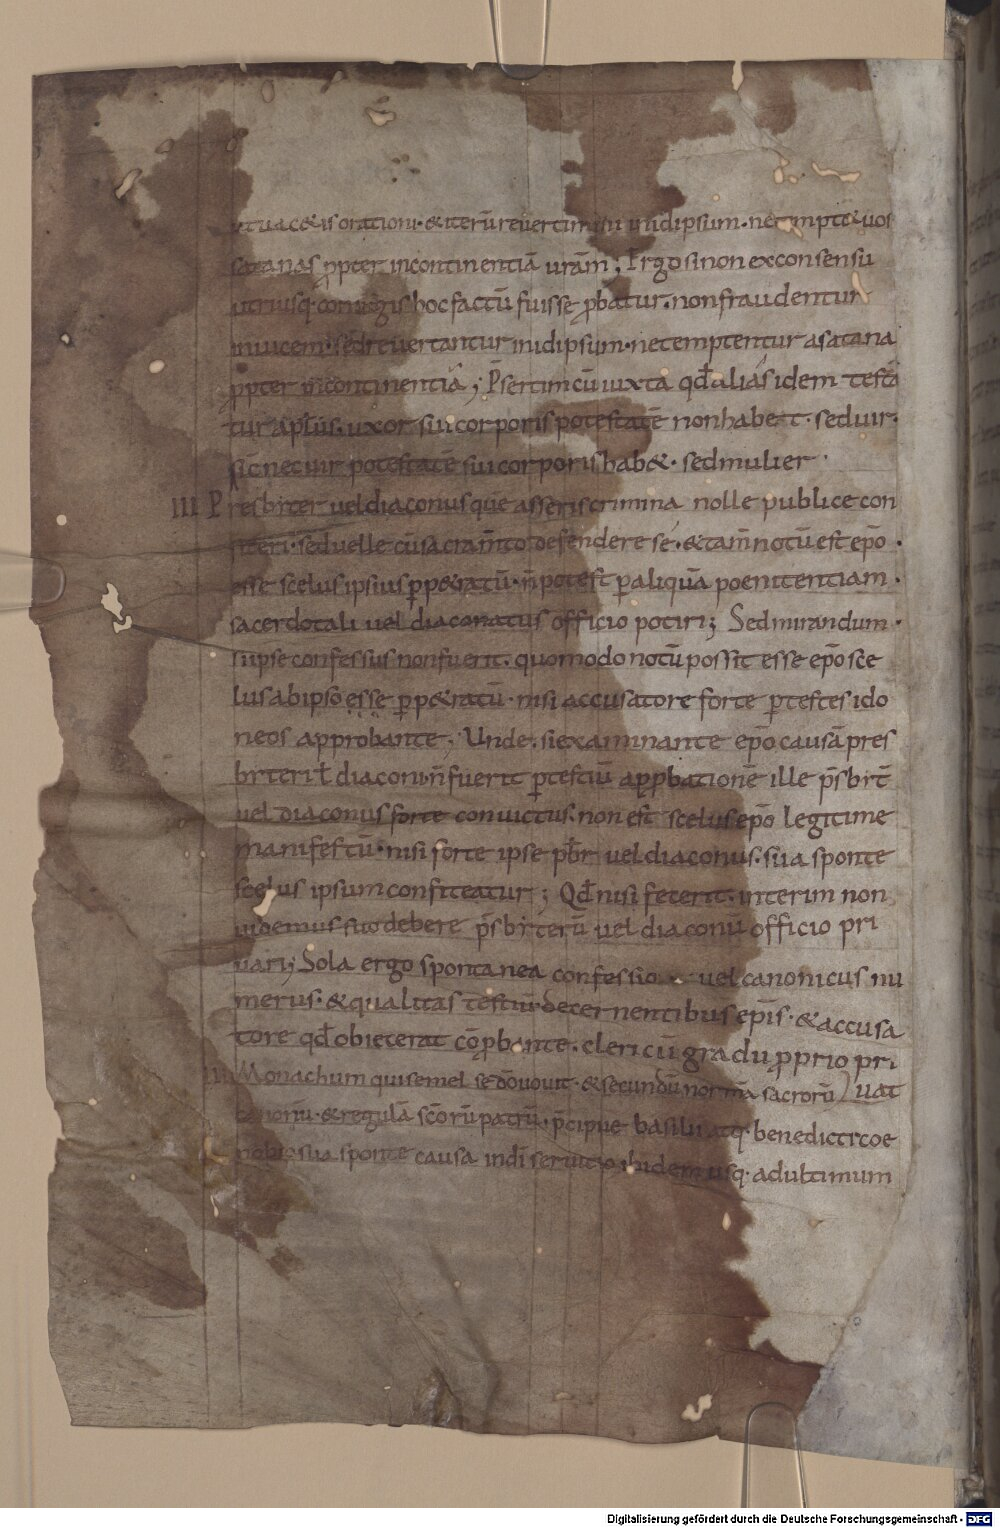 ut uac&is orationi· & iterū reuertimini inidipsum· ne tempt& uos
satanas ꝓpter incontinentiā urām; Ergo si non ex consensu
utriusq· coniugis hoc factū fuisse ꝓbatur· non fraudentur
inuicem· sed reuertantur inidipsum· ne temptentur a satana
ꝓpter incontinentiā; P̄sertim cū iuxta qd̄ alias idem testa
tur apl̄us· uxor sui corporis potestatē non habet· sed uir·
sic nec uir potestatē sui corporis hab&· sed mulier·
III Presbiter uel diaconus que asseris crimina nolle publice con
fiteri· sed uelle cū sacram̄to defendere se· & tam̄ notū est ep̄o·
esse scelus ipsius ꝑp&ratū· n̄ potest ꝑ aliquā poenitentiam·
sacerdotali uel diaconatus officio potiri; Sed mirandum·
si ipse confessus non fuerit· quomodo notū possit esse ep̄o sce
lus ab ipso esse ꝑp&ratū· nisi accusatore forte ꝑ testes ido
neos approbante· Unde· si examinante ep̄o causā pres
biteri ł diaconi n̄ fuerit ꝑ testiū apꝓbationē ille p̄sbit̄
uel diaconus forte conuictus· non est scelus ep̄o legitime
manifestū· nisi forte ipse pb̄r uel diaconus· sua sponte
scelus ipsum confiteatur; Qd̄ nisi fecerit· interim non
uidemus suo debere p̄sbiterū uel diaconū officio pri
uari; Sola ergo spontanea confessio· uel canonicus nu
merus· & qualitas testiū decernentibus ep̄is· & accusa
tore qd̄ obiecerat cōꝓbante· clericū gradu ꝓprio pri
uat
IIII Monachum qui semel se dō uouit· & secundū normā sacrorū
canonū· & regulā scōrū patrū· p̄cipue basilii atq· benedicti coe
nobio sua sponte causa indi seruitio ibidem usq· ad ultimum
Digitalisierung gefördert durch die Deutsche Forschungsgemeinschaft - DFG